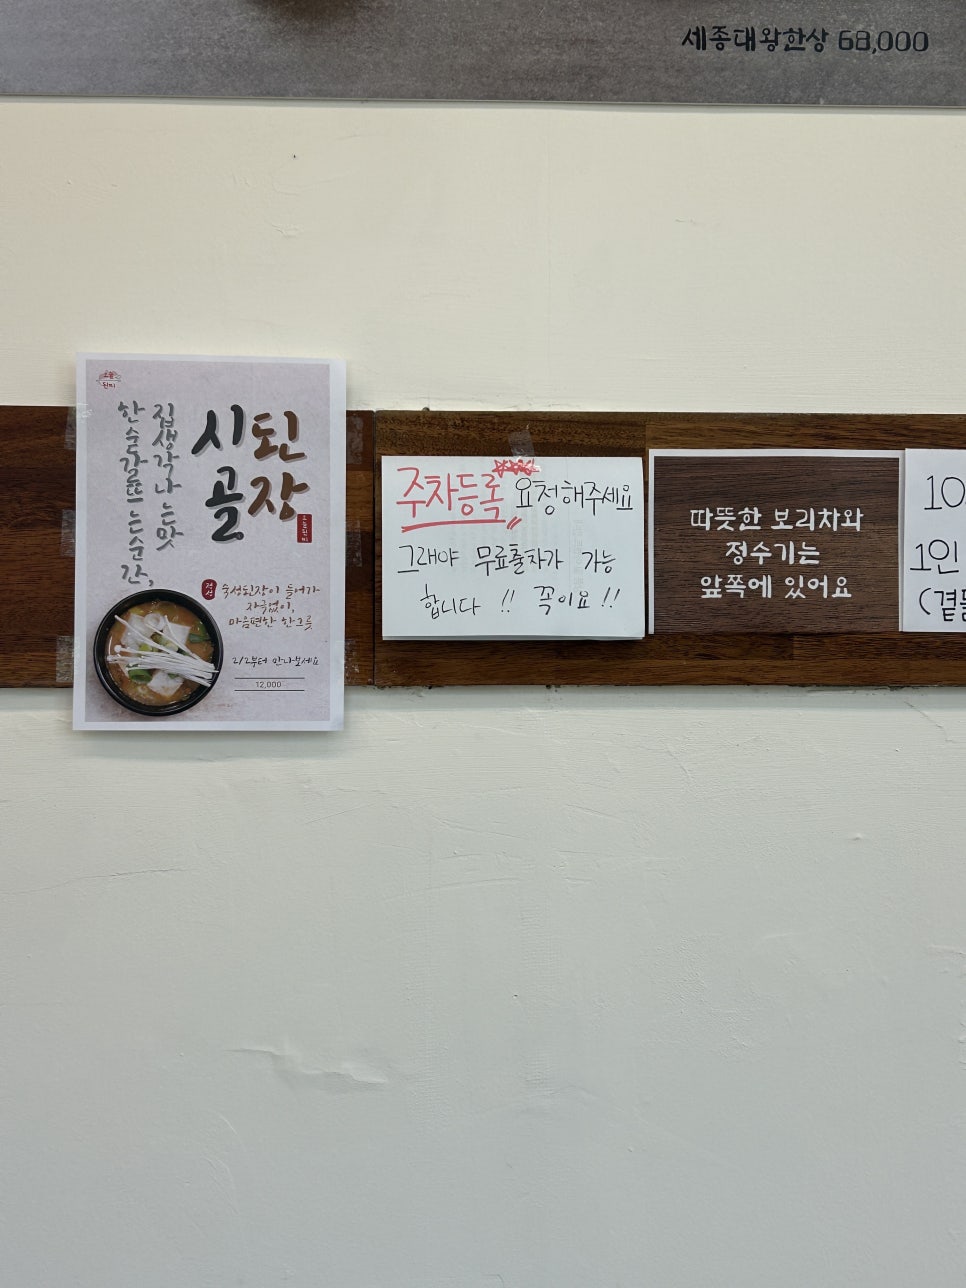 세종대왕한상 68,000
오늘
된찌
시골
된장
집생각나는맛
한 숟갈뜨는순간,
오늘된찌
정성
숙성된장이 들어가
자극없이,
마음편한 한그릇
2/2부터 만나보세요
12,000
주차등록 요청해주세요
그래야 무료출차가 가능
합니다 !! 꼭이요!!
따뜻한 보리차와
정수기는
앞쪽에 있어요
10
1인